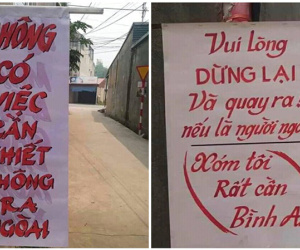 KHÔNG
CÓ
VIỆC
CẦN
THIẾT
KHÔNG
RA
NGOÀI
Vui lòng
DỪNG LẠI
Và quay ra
nếu là người
Xóm tôi
Rất cần
Bình